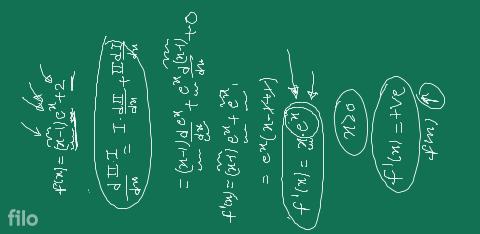 f(x) = (x-1)e^x + 2
d II·I / dx = I · dII/dx + II dI/dx
= (x-1) de^x/dx + e^x d(x-1)/dx + 0
f'(x) = (x-1)e^x + e^x · 1
= e^x (x-1+1)
f'(x) = x·e^x
x≥0
f'(x) = +ve
f(x) ↑
filo